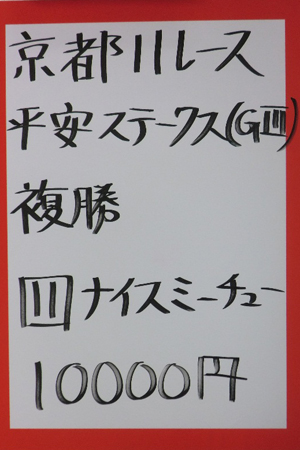 京都11レース
平安ステークス(GⅢ)
複勝
11 ナイスミーチュー
10000円